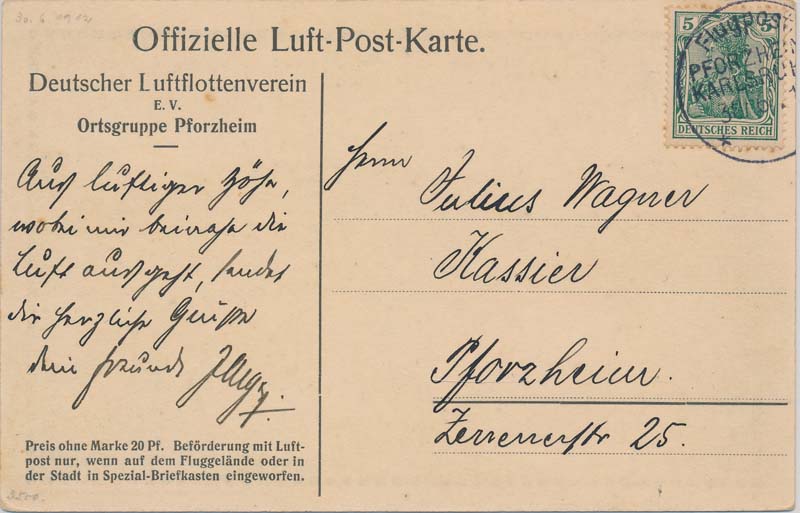 30. 6. 1912
Offizielle Luft-Post-Karte.
Deutscher Luftflottenverein
E. V.
Ortsgruppe Pforzheim
Aus luftiger Höhe,
wobei mir beinahe die
Luft ausgeht, sendet
dir herzliche Grüße
dein Freund
Preis ohne Marke 20 Pf. Beförderung mit Luft-
post nur, wenn auf dem Fluggelände oder in
der Stadt in Spezial-Briefkasten eingeworfen.
5 5
FLUGPOST
PFORZHEI
KARLSRUH
DEUTSCHES REICH
Herrn
Julius Wagner
Kassier
Pforzheim.
Zerrennerstr 25.